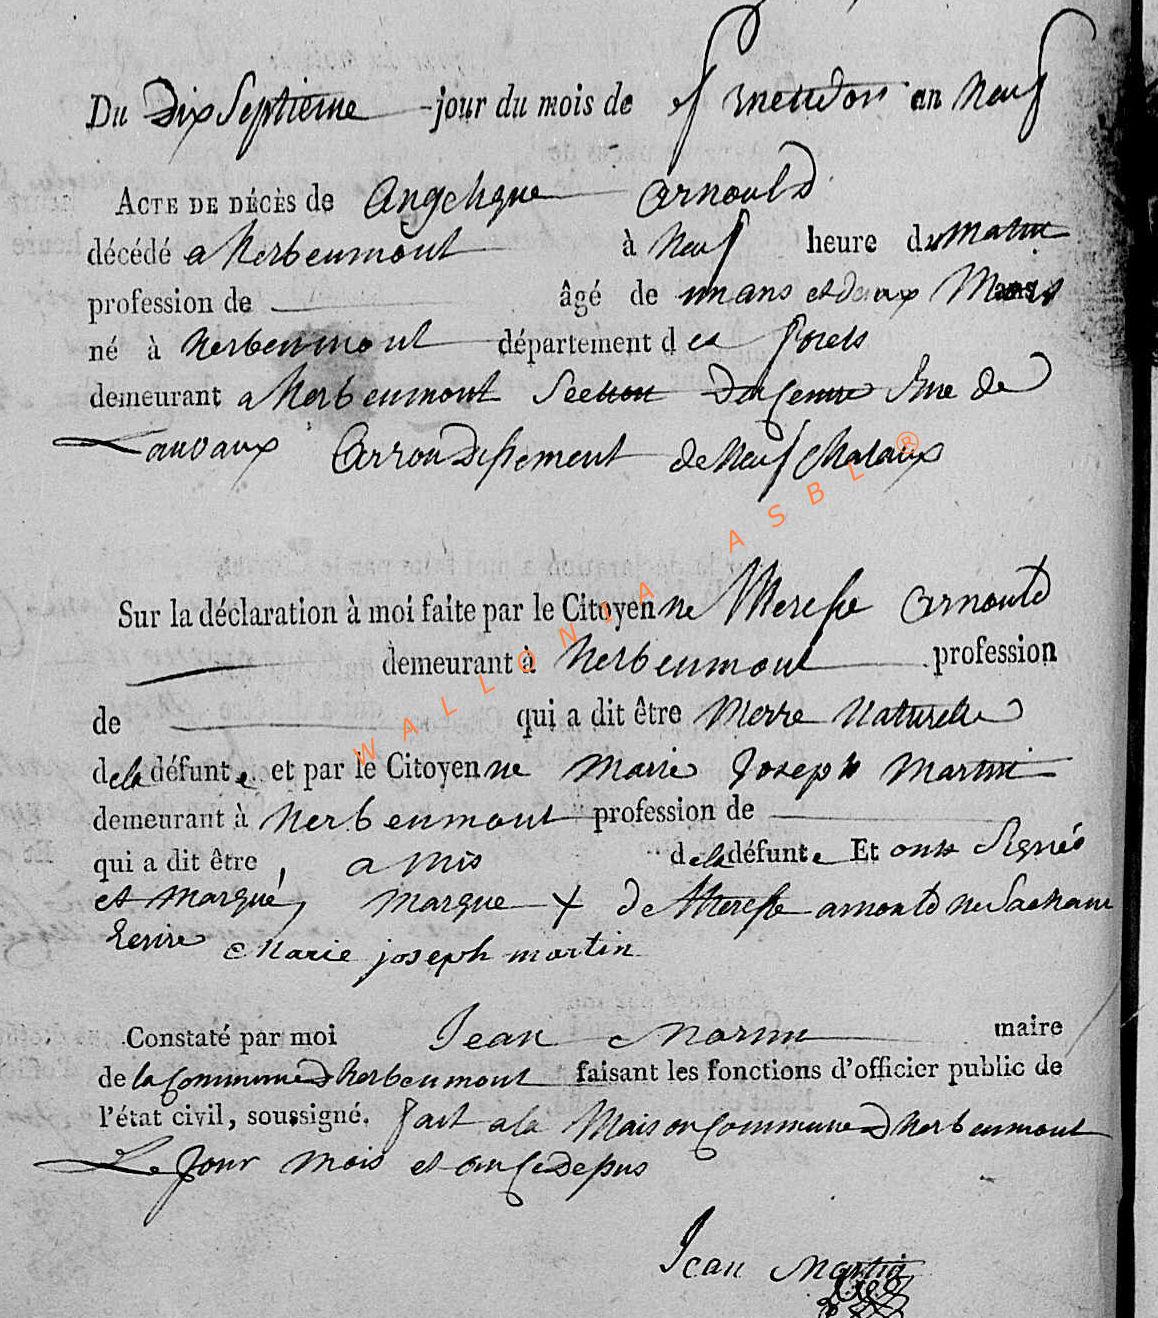 Du Dix Septieme jour du mois de frimendor an Neuf
ACTE DE DÉCÈS de Angelique Arnould
décédé a Herbeumont à Neuf heure du Matin
profession de âgé de un ans et deux Mois
né à Herbeumont département des forets
demeurant a Herbeumont Section du Centre de
Lauvaux Arrondissement de Neufchataux
Sur la déclaration à moi faite par le Citoyenne Therese Arnould
demeurant à Herbeumont profession
de qui a dit être Merre Naturelle
de la défunte et par le Citoyenne Marie Joseph Martin
demeurant à Herbeumont profession de
qui a dit être, amis de la défunte Et onts Signés
et Marqué, Marque + de Therese arnould ne Sachant
Ecrire Marie joseph martin
Constaté par moi Jean Martin maire
de la Commune d herbeumont faisant les fonctions d'officier public de
l'état civil, soussigné. fait a la Maison Commune d herbeumont
Le Jour Mois et an Cidepus
Jean Martin
WALLONIA ASBL ®